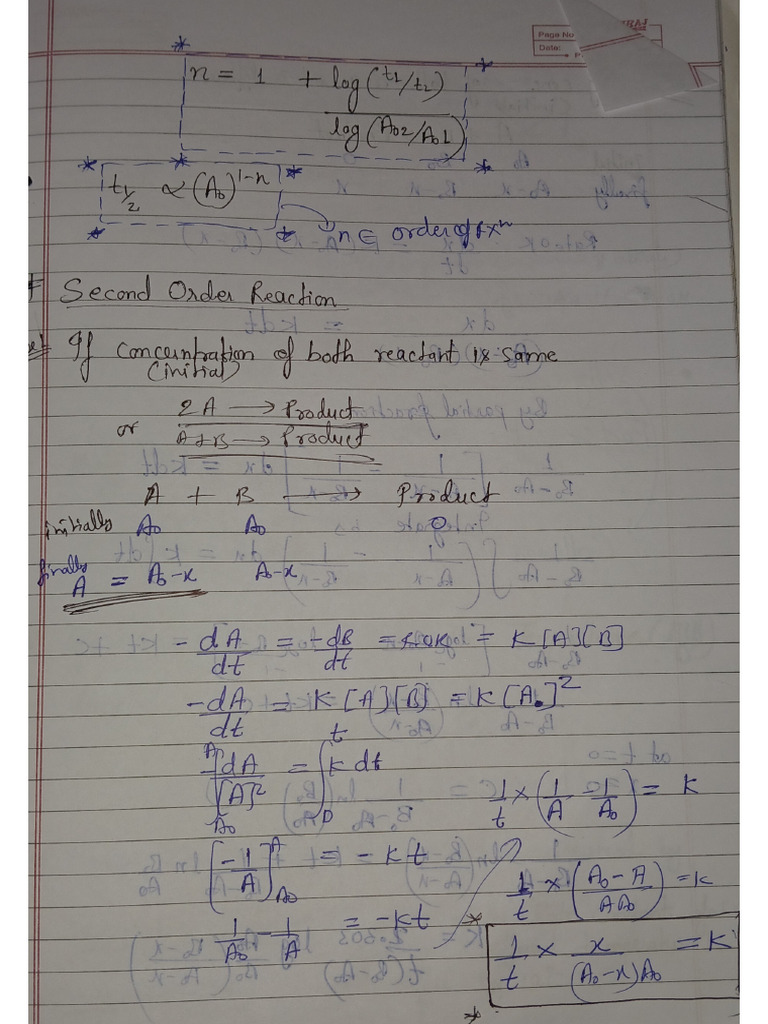 Page No
Date:
n = 1 + log(t1/t2)
log(A02/A01)
t1/2 ∝ (A0)^1-n
n ∈ order of rxn
Second Order Reaction
If concentration of both reactant is same
(initial)
2A → Product
or A+B → Product
A + B → Product
initially A0 A0 0
finally A = A0-x A0-x
-dA/dt = -dB/dt = = K[A][B]
-dA/dt = K[A][B] = K[A0]^2
∫dA/[A]^2 = ∫k dt
1/t × (1/A - 1/A0) = K
[-1/A] A A0 = -kt
1/t × (A0-A/AA0) = K
1/A0 - 1/A = -kt
1/t × x/(A0-x)A0 = K